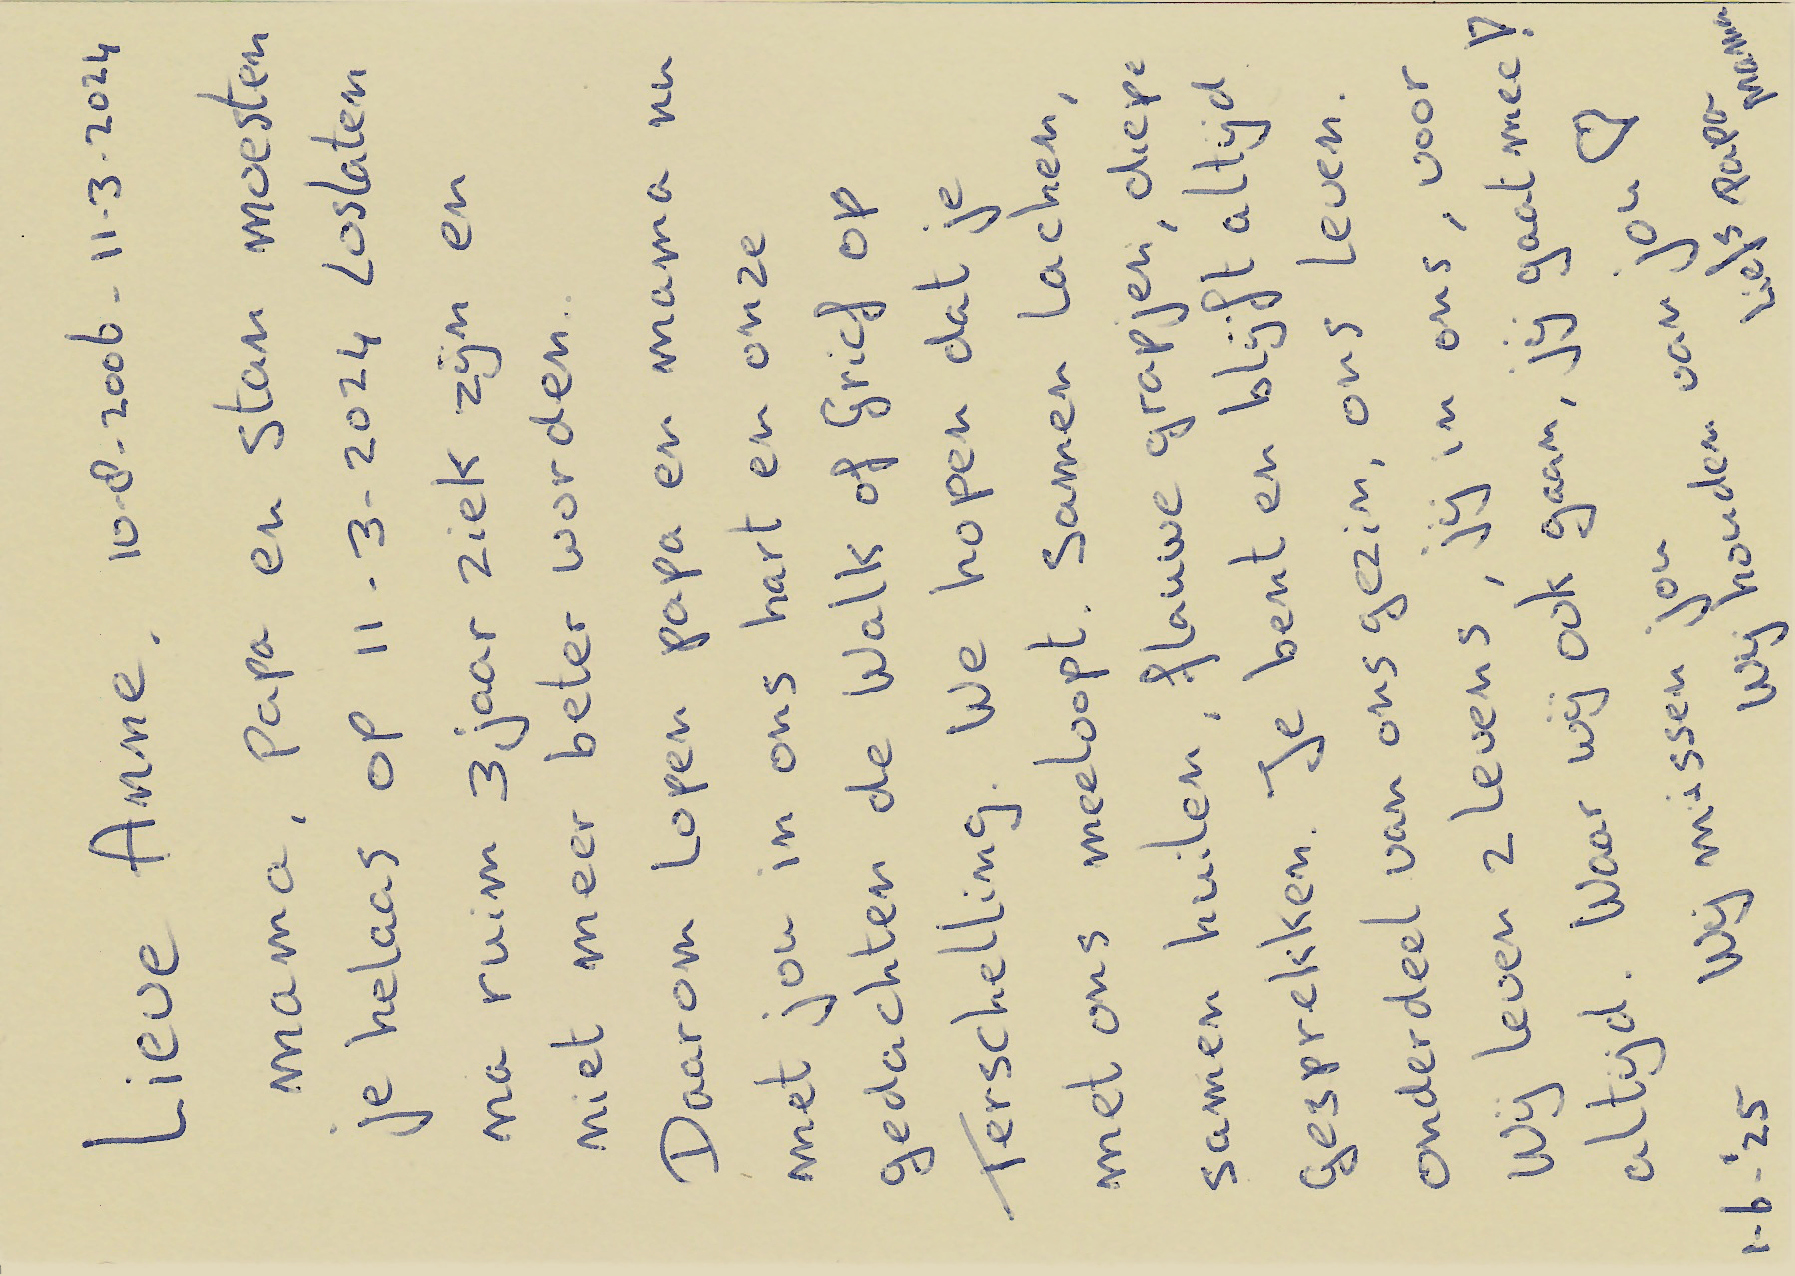 Lieve Anne, 10-8-2006 - 11-3-2024
mama, papa en Stan moesten
je helaas op 11-3-2024 Loslaten
na ruim 3 jaar ziek zijn en
niet meer beter worden.
Daarom Lopen papa en mama nu
met jou in ons hart en onze
gedachten de Walk of Grief op
Terschelling. We hopen dat je
met ons meeloopt. Samen lachen,
samen huilen, flauwe grapjen, diepe
gesprekken. Je bent en blijft altijd
onderdeel van ons gezin, ons leven.
Wij leven 2 levens, jij in ons, voor
altijd. Waar wij ook gaan, jij gaat mee!?
Wij missen jou
Wij houden van jou ♡
1-6-'25 Liefs papa mama